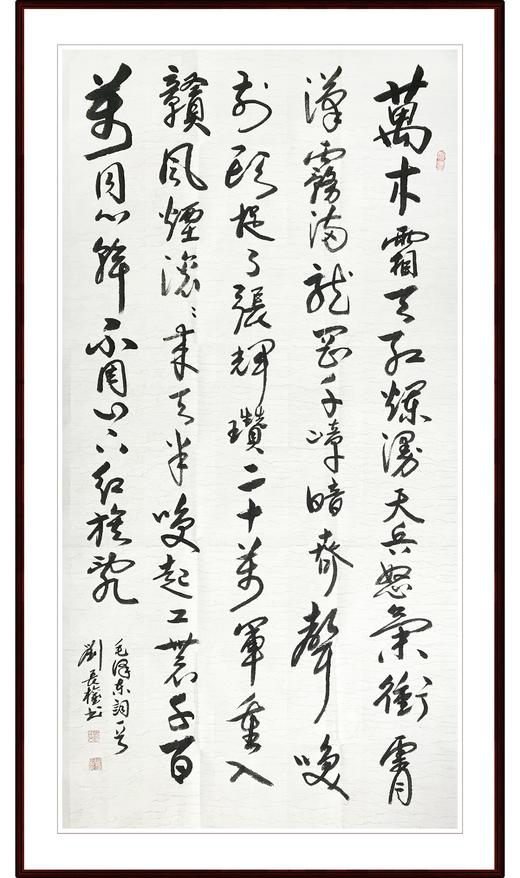 萬木霜天紅爛漫天兵怒氣衝霄
漢霧滿龍岡千嶂暗齊聲喚
前頭捉了張輝瓚二十萬軍重入
贛風煙滾〻來天半喚起工農千百
萬同心幹不周山下紅旗亂
毛澤東詞一首
劉長书